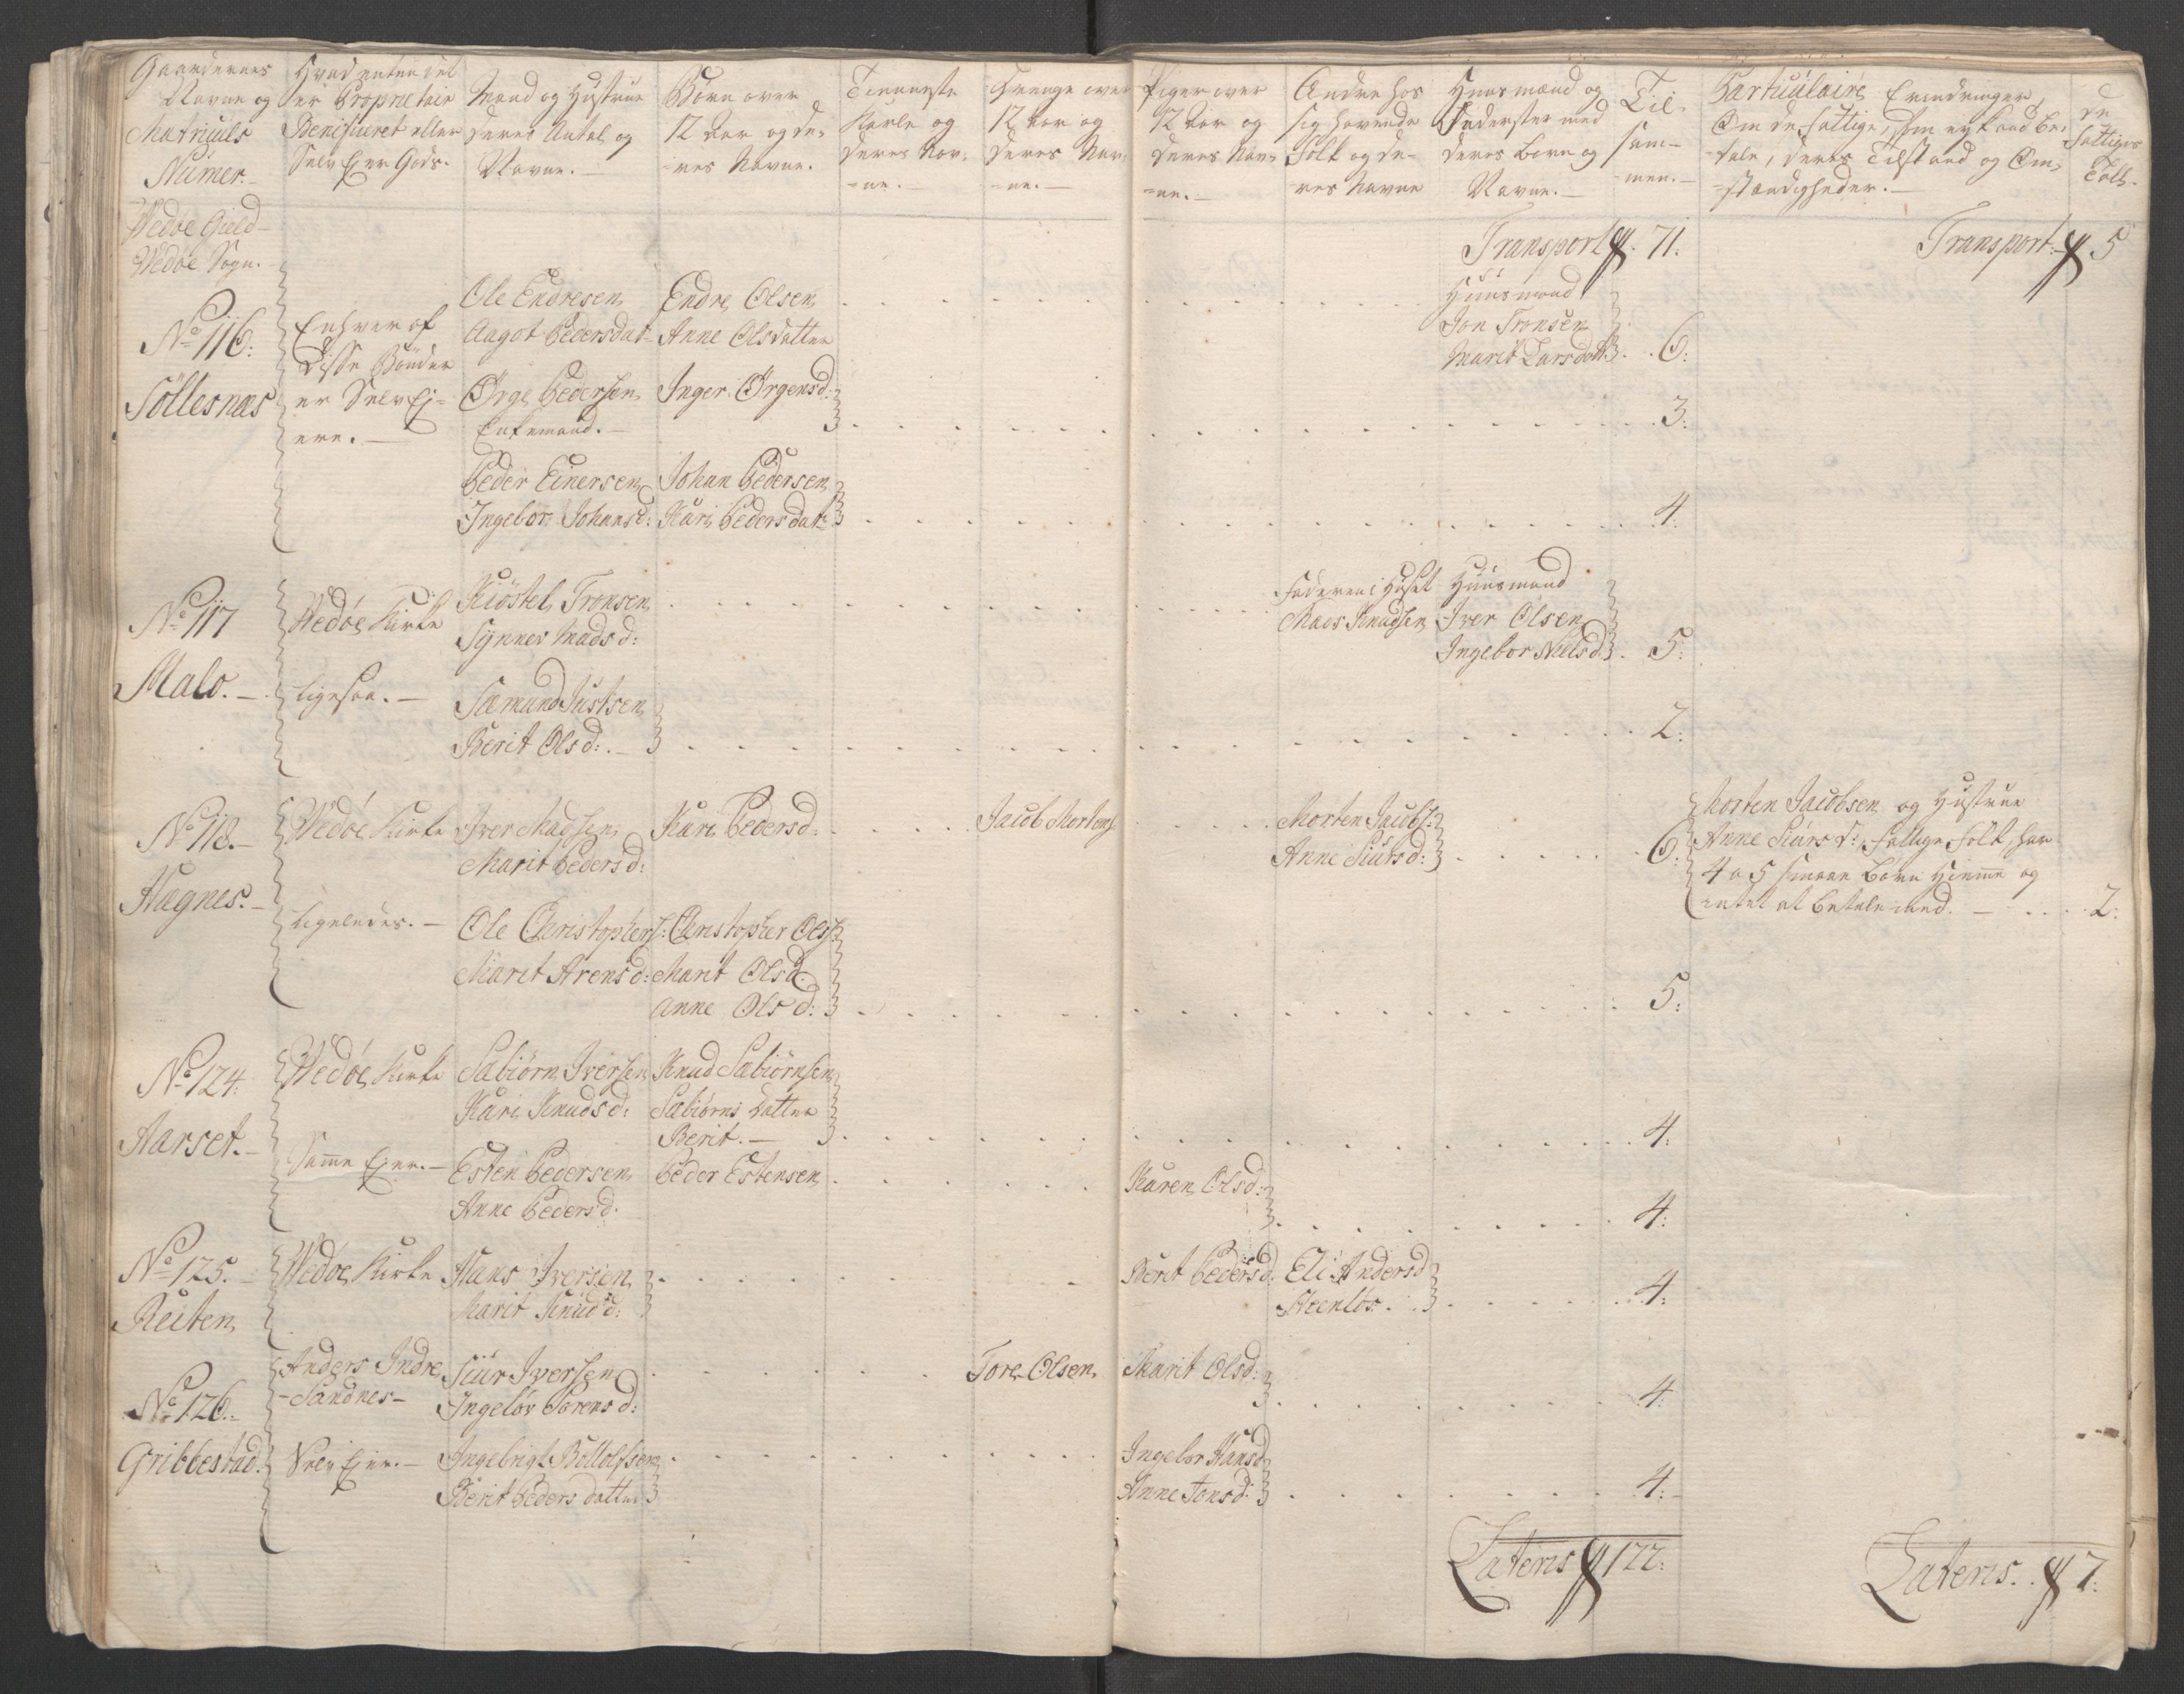 Gaardernes
Navne og
Matriculs
Numer.
Hvad enten det
er Proprietair
Benificeret eller
Selv Ejer Gods.
Mand og Hustrue
deres Antal og
Navne.
Børn over
12 Aar og de-
-res Navne.
Tienneste
Karle og
deres Nav-
=ne.
Drenge over
12 Aar og
deres Nav-
=ne.
Piger over
12 Aar og
deres Nav-
=ne.
Andre hos
sig havende
Folk og de-
-res Navne
Huusmænd og
Inderster med
deres Børn og
Navne.
Til
sam-
men.
Particulaire Erindringer
Om de fattige, som ey kand be-
tale, deres Tilstand og Om-
-stændigheder.
de
fattiges
Tall.
Wedøe Gield
Wedøe Sogn.
Transport 71:
Transport: 5
No 116:
Söllesnæs
Enhver af
disse Bönder
er Selv Ej-
ere.
Ole Endresen
Aagot Pedersdat
Endre Olsen
Anne Olsdatter
Huusmand
Jon Tronsen
Marit Larsdatt 6:
Ørge Pedersen
Enkemand.
Inger Ørgensd: 3:
Peder Einersen
Ingebor Johansd:
Johan Pedersen
Kari Pedersdatr 4:
No 117
Malo.
Wedöe Kirke
Kiöstel Tronsen
Synnev Madsd:
Faderen i Huset
Mads Knudsen
Huusmand
Iver Olsen
Ingebor Nielsd: 5:
Ligesaa.
Sæmund Justsen
Berit Olsd: 2:
No 118.
Hagnes.
Wedöe Kirke
Iver Madsen
Marit Pedersd:
Kari Pedersd:
Jacob Mortens
Morten Jacobs:
Anne Siursd: 6:
Morten Jacobsen og Hustrue
Anne Siursd: fattige Folk, har
4 a 5 smaae Børn hiemme og
intet at betale med. 2:
Ligeledes.
Ole Christophers:
Marit Arensd:
Christopher Ols:
Marit Olsd:
Anne Olsd: 5:
No 124.
Aarset.
Wedöe Kirke
Sabiörn Iversen
Kari Knudsd:
Knud Sabiörnsen
Sabiörns Datter
Berit. 4:
Samme Ejer.
Esten Pedersen
Anne Pedersd.
Peder Estensen
Karen Olsd: 4:
No 125.
Reiten
Wedöe Kirke
Hans Iversen
Marit Knudsd:
Berit Pedersd.
Eli Andersd
4:
No 126.
Gribbestad.
Anders Indre
-Sandnes-
Siur Iversen
Ingebor Sörensd:
Tore Olsen
Marit Olsd: 4:
Selv Ejer.
Ingebrigt Bottolfsen
Berit Peders datter
Ingebor Hansd
Anne Jonsd: 4:
Lateris 122:
Lateris. 7: